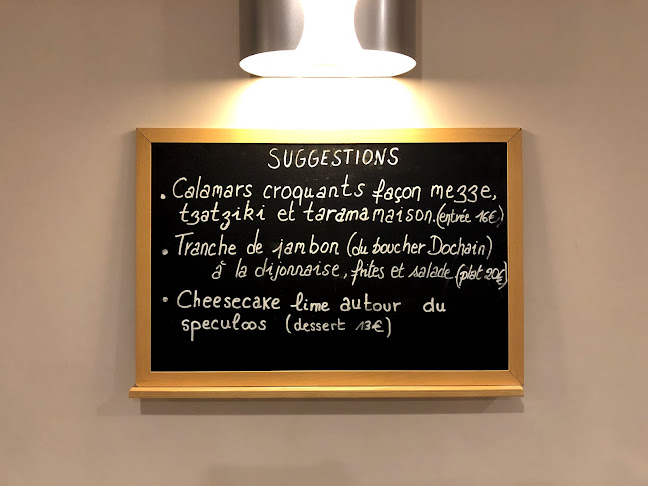 SUGGESTIONS
• Calamars croquants façon mezze,
tzatziki et tarama maison. (entrée 16€)
• Tranche de jambon (du boucher Dochain)
à la dijonnaise, frites et salade (plat 20€)
• Cheesecake lime autour du
speculoos (dessert 13€)